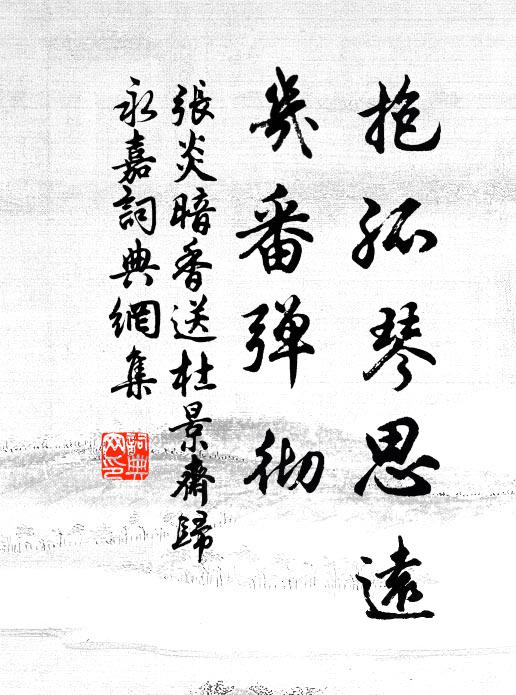 抱孤琴思遠
幾番弹彻
張炎暗香送杜景齋歸
永嘉詞典網集
詞典
网印